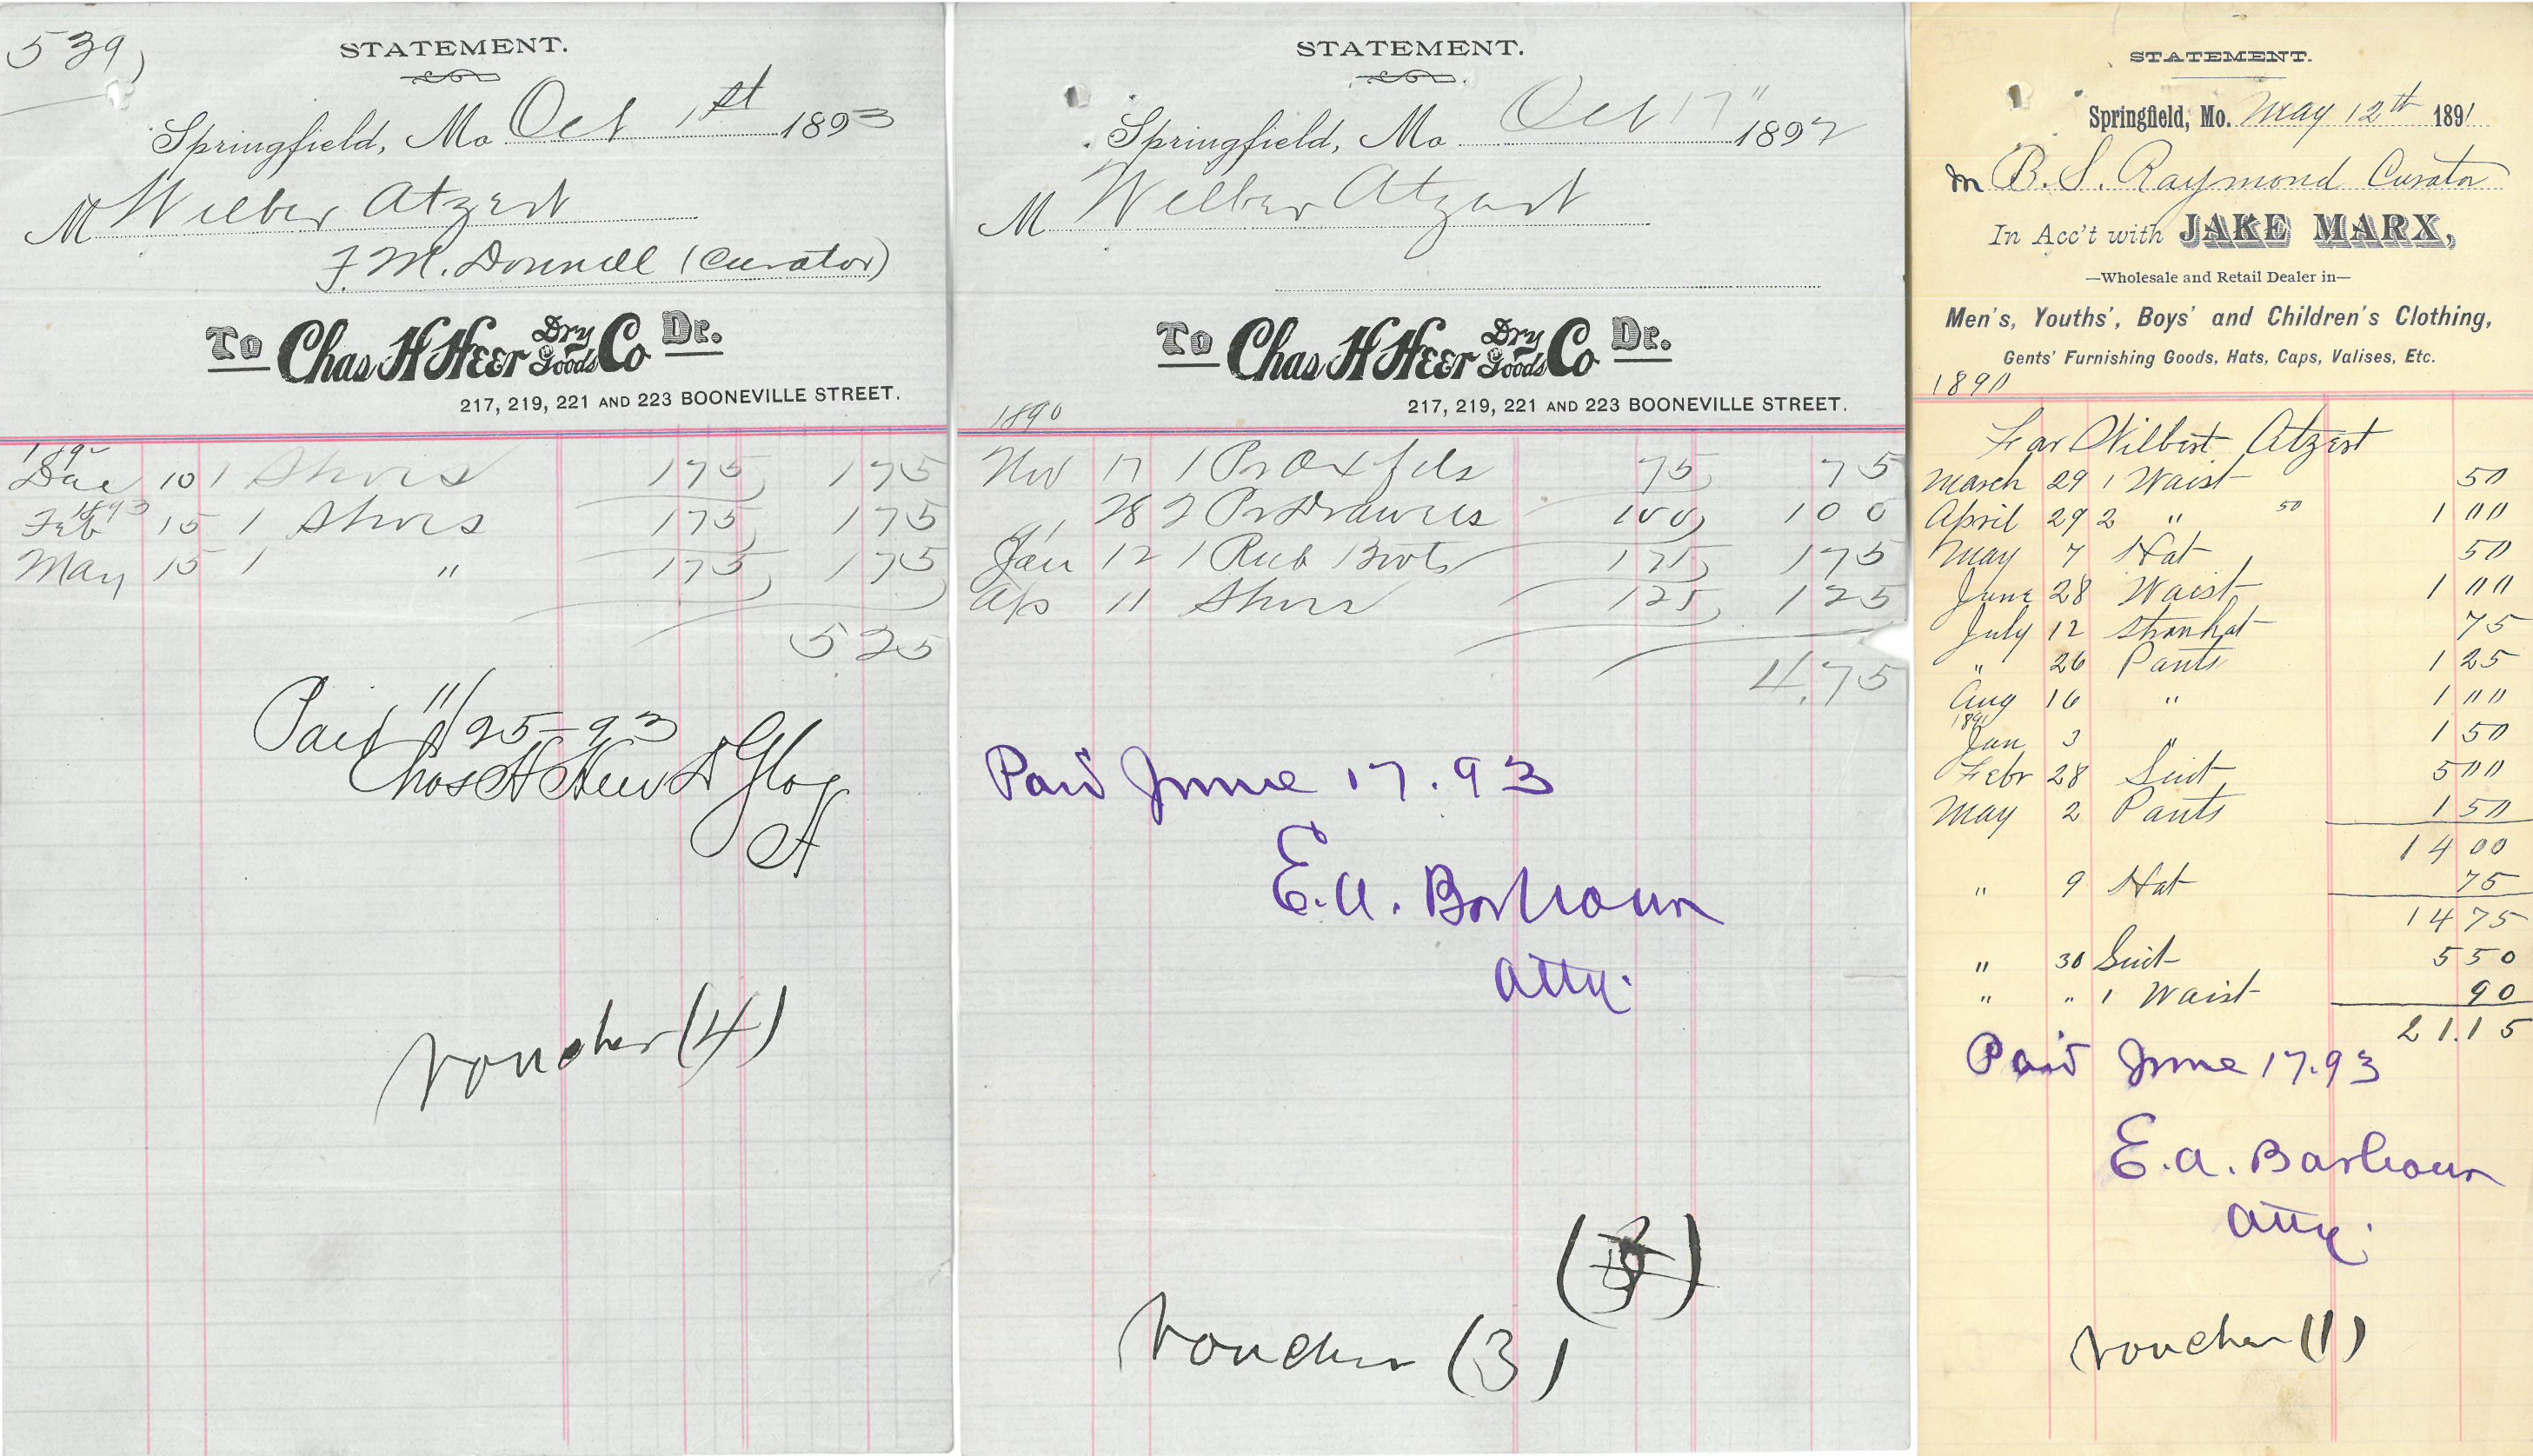 539)
STATEMENT.
Springfield, Mo Oct 1st 1893
M Wilber Atzert
F. M. Donnell (Curator)
To Chas H Heer Dry Goods Co Dr.
217, 219, 221 AND 223 BOONEVILLE STREET.
189
Dec 10 1 Shoes 175 175
1893
Feb 15 1 Shoes 175 175
May 15 1 " 175 175
525
Paid 11/25-93
Chas H Heer D G
voucher (4)
STATEMENT.
Springfield, Mo Oct 17" 1892
M Wilber Atzert
To Chas H Heer Dry Goods Co Dr.
217, 219, 221 AND 223 BOONEVILLE STREET.
1890
Nov 17 1 Pr Oxfds 75 75
28 2 Pr Drawers 100 100
Jan 12 1 Rub Boots 175 175
Ap 11 Shoes 125 125
4.75
Paid June 17.93
E.A. Barbour
Atty.
voucher (3)
STATEMENT.
Springfield, Mo. May 12th 1891
M B. S. Raymond Curator
In Acc't with JAKE MARX,
—Wholesale and Retail Dealer in—
Men's, Youths', Boys' and Children's Clothing,
Gents' Furnishing Goods, Hats, Caps, Valises, Etc.
1890
For Wilbert Atzert
March 29 1 Waist 50
April 29 2 " 50 1 00
May 7 Hat 50
June 28 Waist 1 00
July 12 Strawhat 75
" 26 Pants 1 25
Aug 16 " 1 00
1891
Jan 3 " 1 50
Febr 28 Suit 5 00
May 2 Pants 1 50
14 00
" 9 Hat 75
14 75
" 30 Suit 5 50
" " 1 Waist 90
21.15
Paid June 17.93
E.A. Barbour
Atty.
voucher (1)